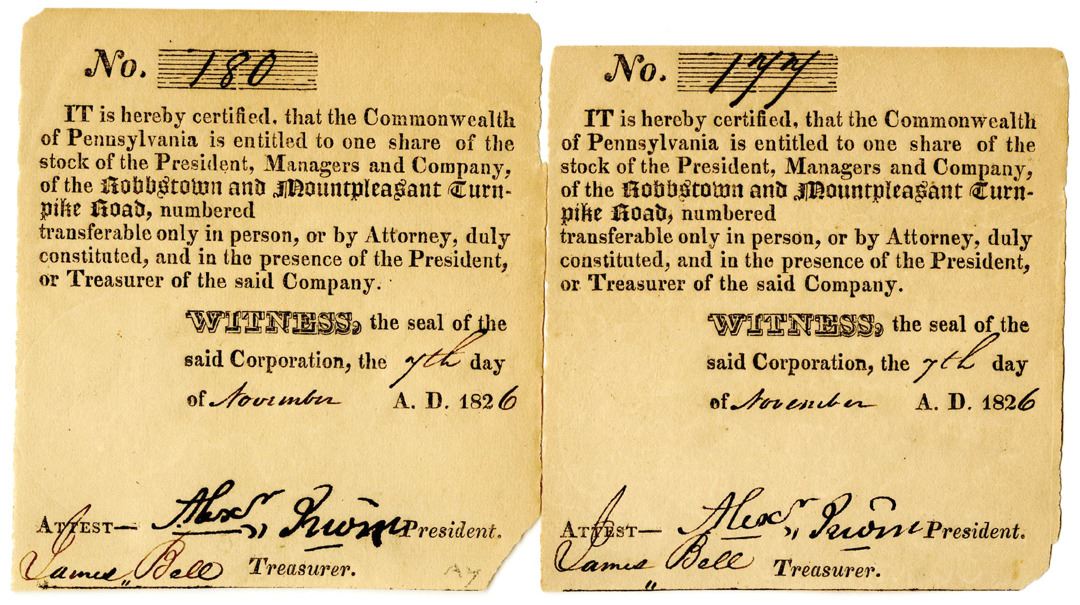 No. 180
IT is hereby certified, that the Commonwealth
of Pennsylvania is entitled to one share of the
stock of the President, Managers and Company,
of the Robbstown and Mountpleasant Turn-
pike Road, numbered
transferable only in person, or by Attorney, duly
constituted, and in the presence of the President,
or Treasurer of the said Company.
WITNESS, the seal of the
said Corporation, the 7th day
of November A. D. 1826
ATTEST— Alexr President.
James Bell Treasurer.
No. 177
IT is hereby certified, that the Commonwealth
of Pennsylvania is entitled to one share of the
stock of the President, Managers and Company,
of the Robbstown and Mountpleasant Turn-
pike Road, numbered
transferable only in person, or by Attorney, duly
constituted, and in the presence of the President,
or Treasurer of the said Company.
WITNESS, the seal of the
said Corporation, the 7th day
of November A. D. 1826
ATTEST— Alexr President.
James Bell Treasurer.